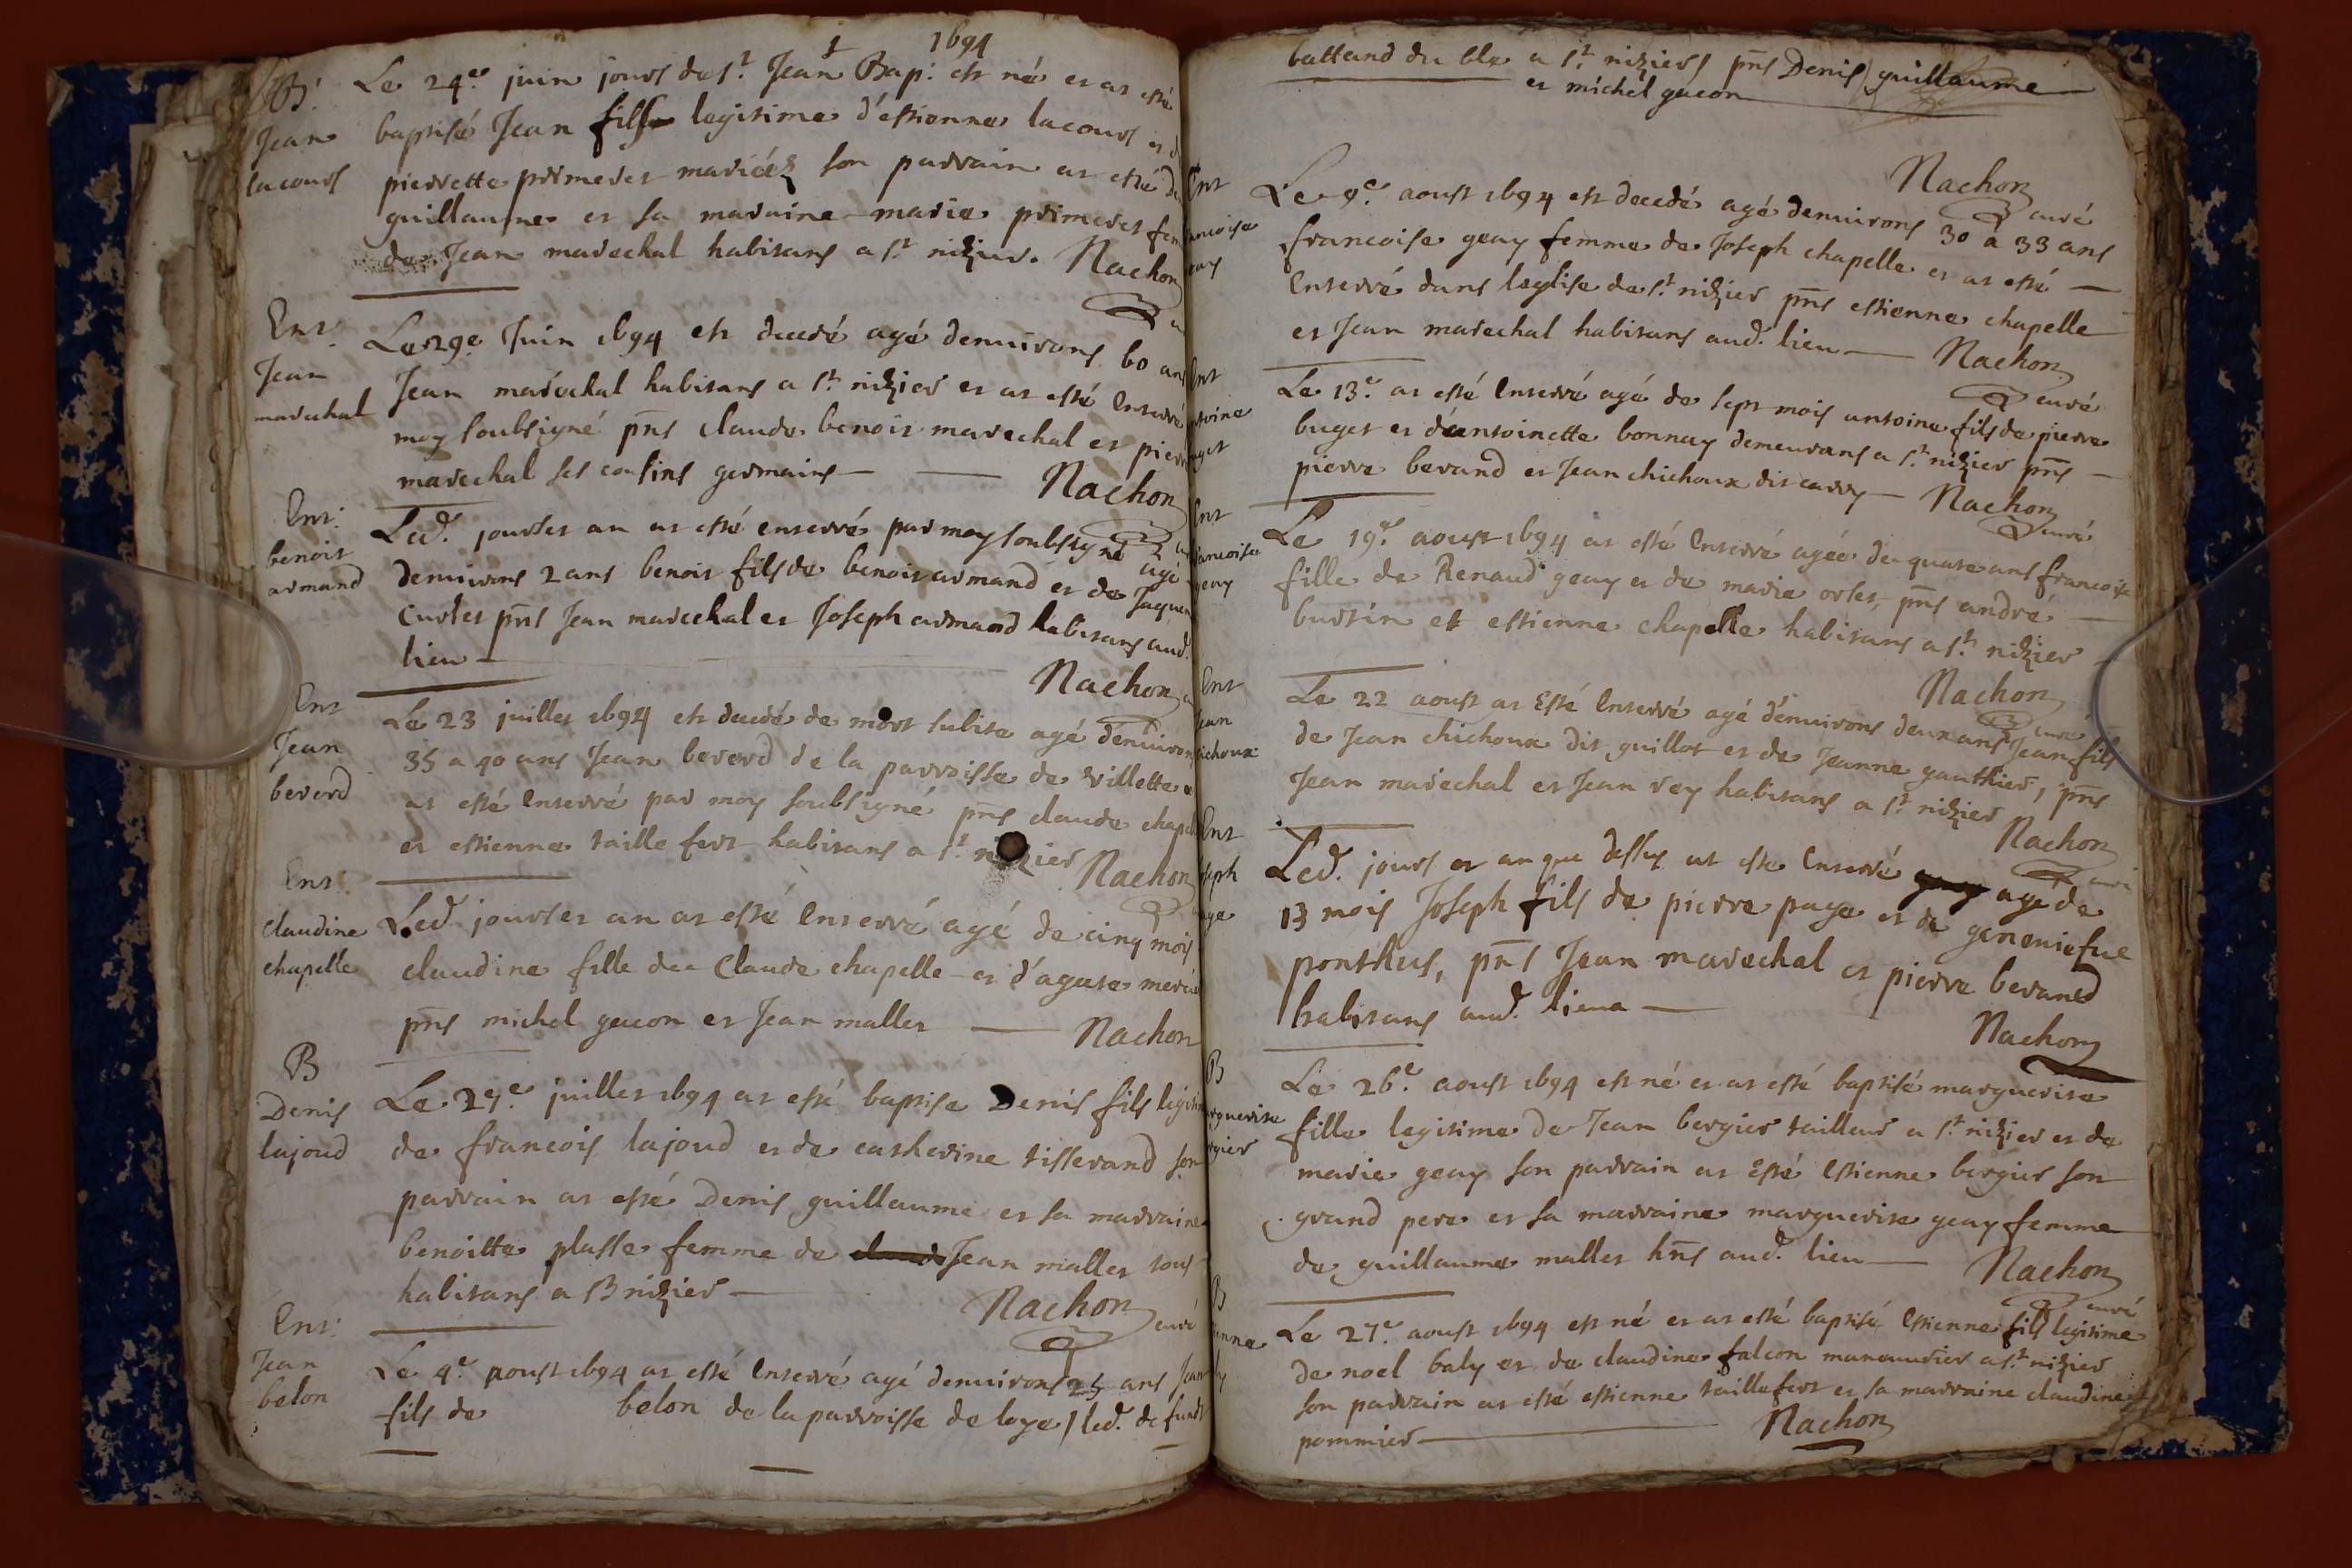 1 1694
B.
Jean
lacours
Le 24e juin jours de st Jean Bap. est né et at esté
baptisé Jean fils legitime d'estienne lacours et d
pierrette primeret mariéz son parrain at esté de
guillaume et sa maraine marie primeret fem
de Jean marechal habitans a st nizier. Nachon
Ent.
Jean
marechal
Le 29e Juin 1694 est decedé agé d'enuirons 60 ans
Jean marechal habitans a st nizier et at esté Enterré
moy soubsigné pns claude benoit marechal et pierre
marechal ses cousins germains — Nachon
Ent.
benoit
armand
Led. jour et an at esté enterré par moy soubsigné agé
denuirons 2 ans benoit fils de benoit armand et de Jaquem
Curtet pns Jean marechal et Joseph armand habitans aud.
lieu — Nachon
Ent
Jean
beverd
Le 23 juillet 1694 est decedé de mort subite agé d'enuirons
35 a 40 ans Jean beverd de la parroisse de villette et
at esté Enterré par moy soubsigné pns claude chapelle
et estienne taille fert habitans a st nizier Nachon
Ent.
claudine
chapelle
Led. jour et an at esté Enterré agé de cinq mois
claudine fille de Claude chapelle et d'agate mercie
pns michel gacon et Jean mallet — Nachon
B
Denis
lajoud
Le 29e juillet 1694 at esté baptisé Denis fils legitim
de francois lajoud et de catherine tisserand son
parrain at esté Denis guillaume et sa marraine
benoitte plasse femme de Jean mallet tous
habitans a st nizier — Nachon curé
Ent.
Jean
belon
Le 4e aoust 1694 at esté Enterré agé denuirons 25 ans Jean
fils de belon de la parroisse de loye / led. defunct
battand du ble a st niziers pns Denis guillaume
et michel gacon
Nachon curé
Ent
ancoise
eay
Le 9e aoust 1694 est decedé agé denuirons 30 a 33 ans
francoise geay femme de Joseph chapelle et at esté —
Enterré dans leglise de st nizier pns estienne chapelle
et Jean marechal habitans aud. lieu — Nachon curé
Ent
ntoine
uget
Le 13e at esté Enterré agé de sept mois antoine fils de pierre
buget et d'antoinette bonnay demeurans a st nizier pns —
pierre berand et Jean chichoux dit carry — Nachon curé
Ent
rancoise
geay
Le 19e aoust 1694 at esté Enterré agée de quatre ans francoise
fille de Renaud geay et de marie ortet, pns andré —
burtin et estienne chapelle habitans a st nizier
Nachon curé
Ent
Jean
ichoux
Le 22 aoust at Esté Enterré agé d'enuirons deux ans Jean fils
de Jean chichoux dit guillot et de Jeanne gauthier, pns
Jean marechal et Jean rey habitans a st nizier
Nachon curé
Ent
oseph
age
Led. jours et an que dessus at esté Enterré age de
13 mois Joseph fils de pierre page et de geneniefue
ponthus, pns Jean marechal et pierre berand
habitans aud. lieu —
Nachon
B
arguerite
rgier
Le 26e aoust 1694 est né et at esté baptisé marguerite
fille legitime de Jean bergier tailleur a st nizier et de
marie geay son parrain at Esté Estienne bergier son
grand pere et sa marraine marguerite geay femme
de guillaume mallet hns aud. lieu — Nachon curé
B
ienne
ly
Le 27e aoust 1694 est né et at esté baptisé Estienne fils legitime
de noel baly et de claudine falcon maneuurier a st nizier
son parrain at esté estienne taillefert et sa marraine claudine
pommier — Nachon